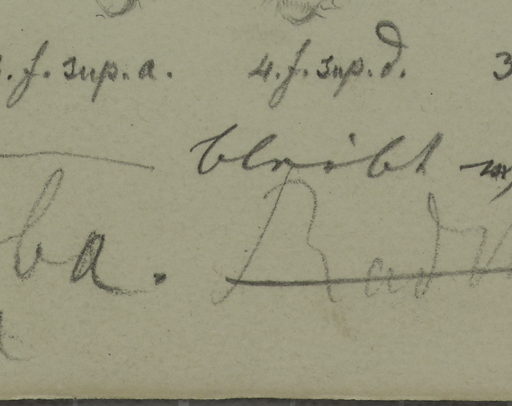 . f. sup. a. 4. f. sup. d. 3
bleibt
ba. Rad